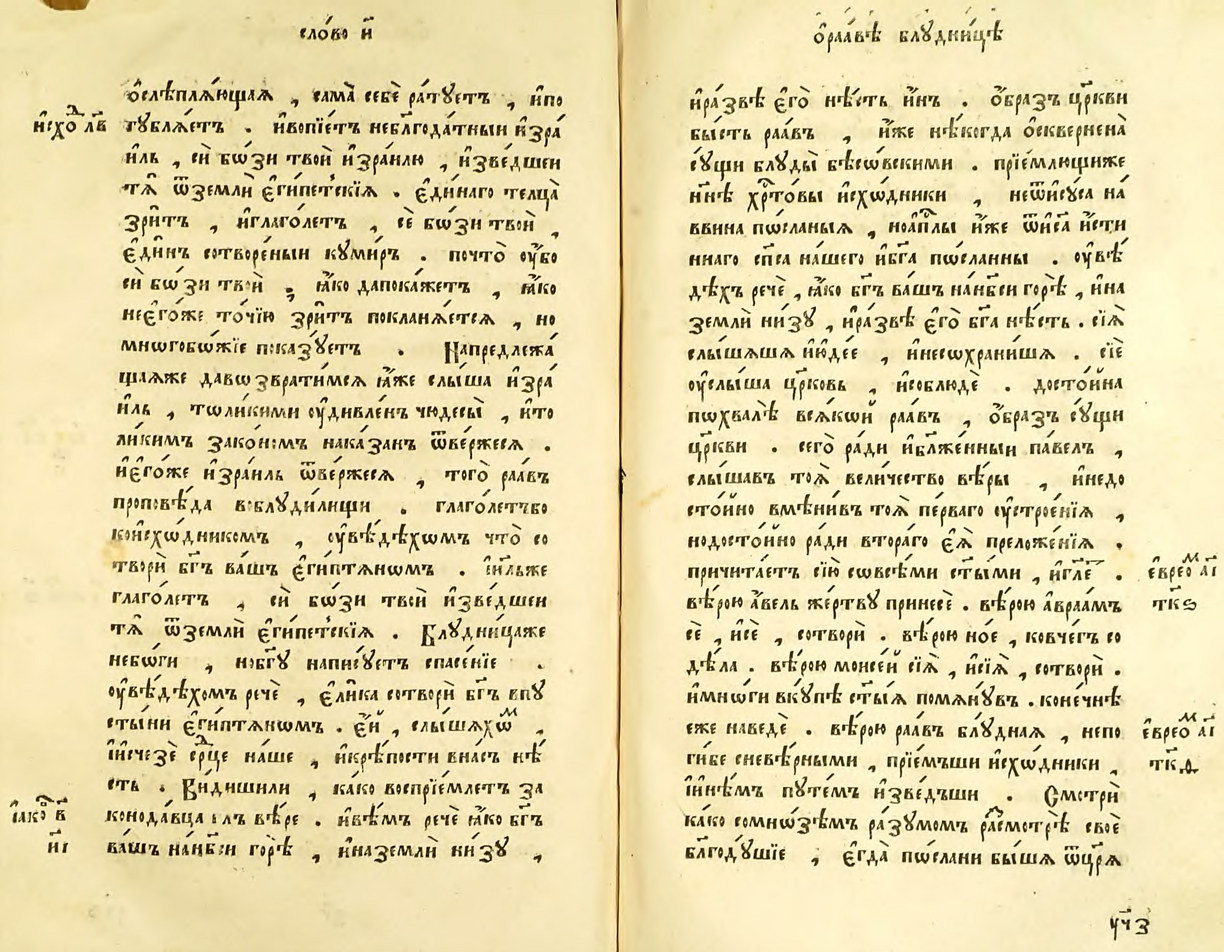 сло́во и҃
ѻ҆слѣплѧ́ющаѧ , сама̀ себѐ ра́тꙋетъ , и҆по
гꙋблѧ́етъ . и҆вопїе́тъ неблг҃ода́тныи и҆зра́
и҃схо лв
иль , сѝ бѡ́зи твоѝ и҆зра́илю , и҆зве́дшеи
тѧ̀ ѿземлѝ є҆ги́петскїѧ . є҆ди́наго телца̀
зри́тъ , и҆глаго́летъ , сѐ бѡ́зи твоѝ ,
є҆ди́нъ сотворе́ныи кꙋми́ръ . почто̀ ᲂу҆̀бо
сѝ бѡ́зи твоѝ , ꙗ҆́ко дапока́жетъ , ꙗ҆́ко
неє҆го́же то́чїю зри́тъ покланѧ́етсѧ , но
мнѡгобѡ́жїе пока́зꙋетъ . Напредлежа́
щаѧже давѡзврати́мсѧ ꙗ҆́же слы́ша и҆зра́
иль , тѡли́кими ᲂу҆дивле́нъ чюдесы̀ , и҆то
ли́кимъ зако́номъ нака́занъ ѿве́ржесѧ .
и҆є҆го́же и҆зра́иль ѿве́ржесѧ , того̀ раа́въ
проповѣ́да вꙋблꙋди́лищи . глаго́летъбо
кои҆схѡ́дникомъ , ᲂу҆вѣ́дѣхѡмъ что̀ со
творѝ бг҃ъ ва́шъ є҆гѵ́птѧнѡмъ . і҆и҃льже
глаго́летъ , сѝ бѡ́зи твоѝ и҆зве́дшеи
тѧ̀ ѿземлѝ є҆ги́петскїѧ . Блꙋдни́цаже
небѡ́ги , нобг҃ꙋ напи́сꙋетъ спасе́нїе .
ᲂу҆вѣ́дѣхомъ речѐ , є҆ли́ка сотворѝ бг҃ъ впꙋ
сты́ни є҆гѵ́птѧнѡмъ . є҆́й , слы́шѧхѡⷨ ,
и҆и҆счезѐ се́рⷣце на́ше , и҆крѣ́пости вна́съ нѣ́
сть . Ви́дишили , ка́ко воспрїе́млетъ за
конода́вца гл҃ъ вѣ́ре . и҆вѣ́мъ речѐ ꙗ҆́ко бг҃ъ
і҆ако в҃
ва́шъ нанб҃си горѣ̀ , и҆наземлѝ ни́зꙋ ,
иі
ѻ҆раа́вѣ блꙋдни́цѣ
и҆ра́звѣ є҆го̀ нѣ́сть и҆́нъ . ѻ҆́бразъ цр҃кви
бы́сть раа́въ , и҆́же нѣ́когда ѻ҆скверне́на
сꙋ́щи блꙋды̀ бѣсѡ́вскими . прїе́млющиже
нн҃ѣ хрⷭ҇то́вы и҆схѡ́дники , неѿи҆сꙋ́са на́
ввина пѡ́сланыѧ , ноапⷭ҇лы и҆̀же ѿі҆и҃са и҆́сти
ннаго сп҃са на́шего и҆бг҃а пѡ́сланны . ᲂу҆вѣ́
дѣхъ речѐ , ꙗ҆́ко бг҃ъ ва́шъ нанб҃си горѣ̀ , и҆на
землѝ ни́зꙋ , и҆ра́звѣ є҆го̀ бг҃а нѣ́сть . сїѧ̀
слы́шѧшѧ и҆ю҆де́е , и҆несѡхрани́шѧ . сїѐ
ᲂу҆слы́ша цр҃ковь , и҆соблюдѐ . досто́йна
пѡхвалѣ̀ всѧ́кѡй раа́въ , ѻ҆́бразъ сꙋ́щи
цр҃кви . сего̀ ра́ди и҆бл҃же́нныи па́велъ ,
слы́шавъ тоѧ̀ вели́чество вѣ́ры , и҆недо
сто́йно вмѣни́въ тоѧ̀ пе́рваго ᲂу҆строе́нїѧ ,
нодосто́йно ра́ди втора́го є҆ѧ̀ преложе́нїѧ .
причита́етъ сїю̀ сѡвсѣ́ми ст҃ы́ми , и҆гл҃е .
є҆вреоⷨ а҃і
вѣ́рою а҆́вель же́ртвꙋ принесѐ . вѣ́рою а҆враа́мъ
ткѕ
сѐ , и҆сѐ , сотворѝ . вѣ́рою но́е , ковче́гъ со
дѣ́ла . вѣ́рою моисе́й сїѧ̀ , и҆сїѧ̀ , сотворѝ .
и҆мнѡ́ги вкꙋ́пѣ ст҃ы́ѧ помѧнꙋ́въ . коне́чнѣ
еже наведѐ . вѣ́рою раа́въ блꙋ́днаѧ , непо
є҆вреоⷨ а҃і
ги́бе сневѣ́рными , прїе́мъши и҆схѡ́дники ,
ткд
и҆и҆нѣ́мъ пꙋте́мъ и҆зве́дъши . Смотрѝ
ка́ко сомнѡ́зѣмъ ра́зꙋмомъ расмотрѣ̀ своѐ
блг҃одꙋ́шїе , є҆гда̀ пѡ́слани бы́шѧ ѿцр҃ѧ
уч҃з